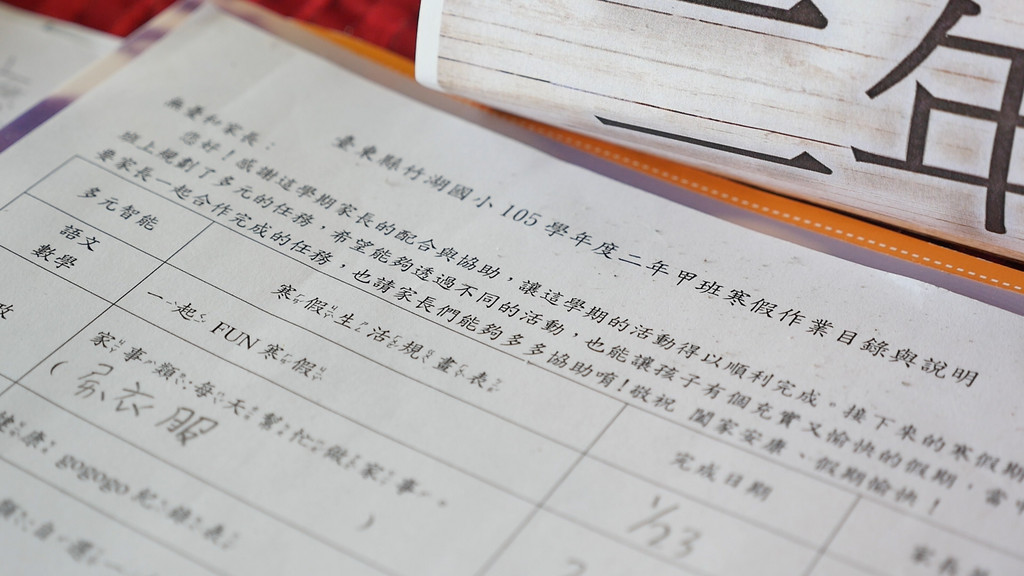 二年
臺東縣竹湖國小 105 學年度二年甲班寒假作業目錄與說明
無憂和家長：
您好！感謝這學期家長的配合與協助，讓這學期的活動得以順利完成。接下來的寒假期
班上規劃了多元的任務，希望能夠透過不同的活動，也能讓孩子有個充實又愉快的假期，當中
要家長一起合作完成的任務，也請家長們能夠多多協助唷！敬祝 闔家安康、假期愉快！
多元智能
完成日期
語文
數學
寒假生活規畫表
一起 FUN 寒假
1/23
家事類：每天幫忙做家事。
( 衣服 )
健康 gogogo 紀錄表